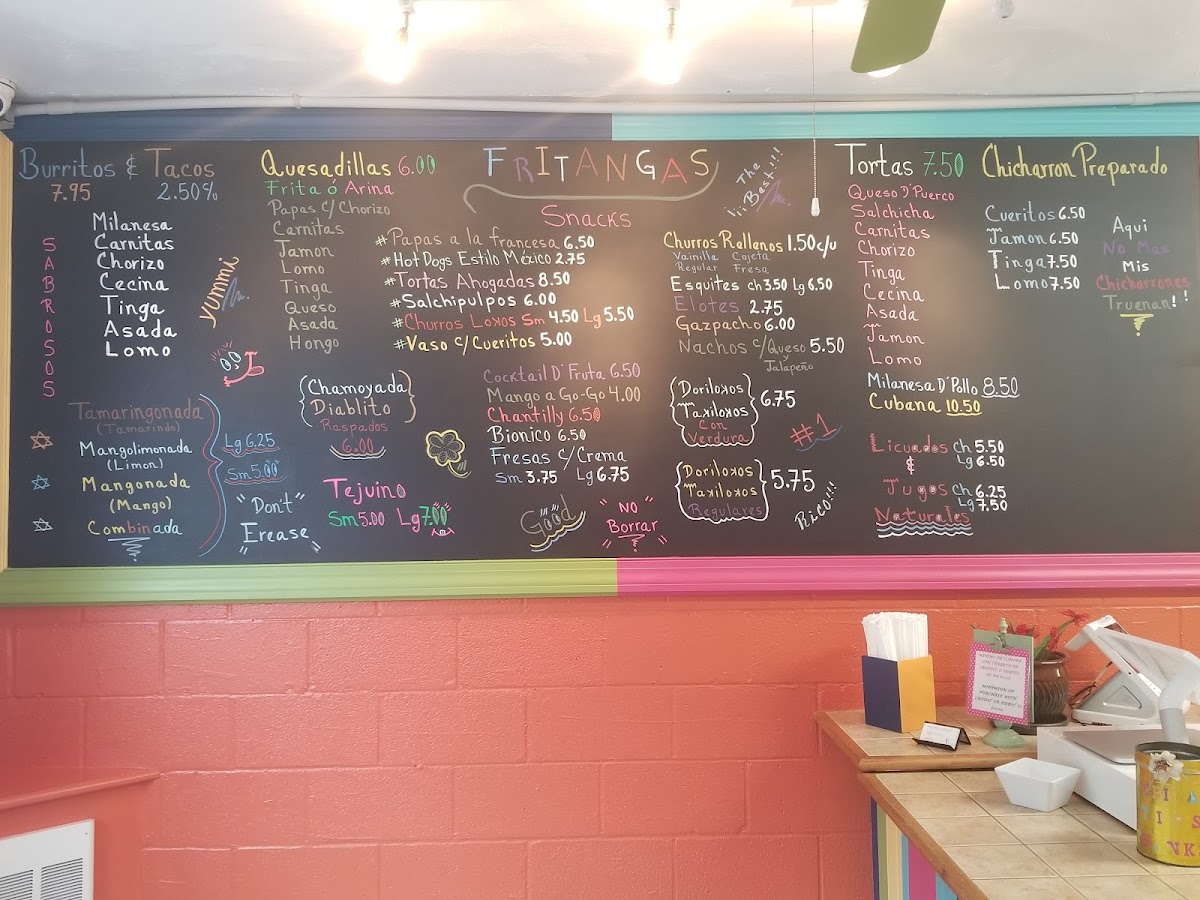 Burritos & Tacos
7.95 2.50%
SABROSOS
Milanesa
Carnitas
Chorizo
Cecina
Tinga
Asada
Lomo
yummi
Tamaringonada
(Tamarindo)
Mangolimonada
(Limon)
Mangonada
(Mango)
Combinada
Lg 6.25
Sm 5.00
"Don't
Erease"
Quesadillas 6.00
Frita ó Arina
Papas c/Chorizo
Carnitas
Jamon
Lomo
Tinga
Queso
Asada
Hongo
Chamoyada
Diablito
Raspados
6.00
Tejuino
Sm 5.00 Lg 7.00
FRITANGAS
Snacks
#Papas a la francesa 6.50
#Hot Dogs Estilo México 2.75
#Tortas Ahogadas 8.50
#Salchipulpos 6.00
#Churros Lokos Sm 4.50 Lg 5.50
#Vaso c/Cueritos 5.00
Cocktail D' Fruta 6.50
Mango a Go-Go 4.00
Chantilly 6.50
Bionico 6.50
Fresas c/Crema
Sm 3.75 Lg 6.75
Good
"NO
Borrar"
The
¡¡¡Best!!!
Churros Rellenos 1.50 c/u
Vainilla Cajeta
Regular Fresa
Esquites ch 3.50 Lg 6.50
Elotes 2.75
Gazpacho 6.00
Nachos c/Queso 5.50
y Jalapeño
Dorilokos
Takilokos
con
Verdura
6.75
#1
Dorilokos
Takilokos
Regulares
5.75
Rico!!!
Tortas 7.50
Queso D'Puerco
Salchicha
Carnitas
Chorizo
Tinga
Cecina
Asada
Jamon
Lomo
Milanesa D'Pollo 8.50
Cubana 10.50
Licuados ch 5.50
& Lg 6.50
Jugos ch 6.25
Lg 7.50
Naturales
Chicharron Preparado
Cueritos 6.50
Jamon 6.50
Tinga 7.50
Lomo 7.50
Aqui
No Mas
Mis
Chicharrones
Truenan!!